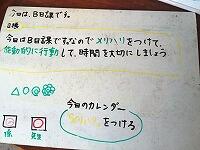 今日は、B日課です。
今日はB日課ですなのでメリハリをつけて、
能動的に行動して、時間を大切にしましょう。
今日のカレンダー
をつける